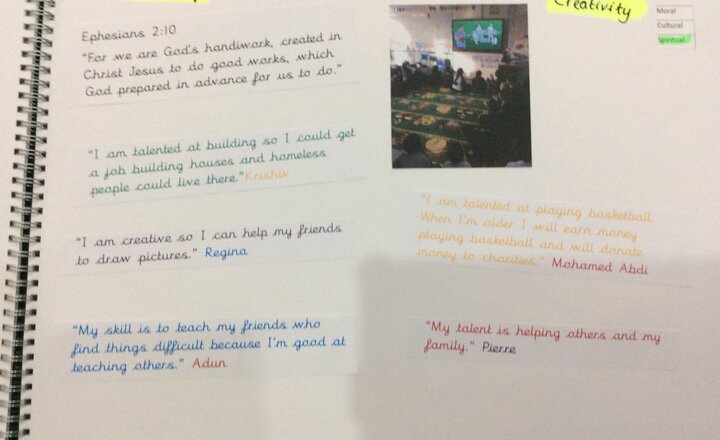 Creativity
Moral
Cultural
Spiritual
Ephesians 2:10
"For we are God's handiwork, created in
Christ Jesus to do good works, which
God prepared in advance for us to do."
"I am talented at building so I could get
a job building houses and homeless
people could live there." Krishiv
"I am creative so I can help my friends
to draw pictures." Regina
"My skill is to teach my friends who
find things difficult because I'm good at
teaching others." Adun
"I am talented at playing basketball
When I'm older I will earn money
playing basketball and will donate
money to charities." Mohamed Abdi
"My talent is helping others and my
family." Pierre